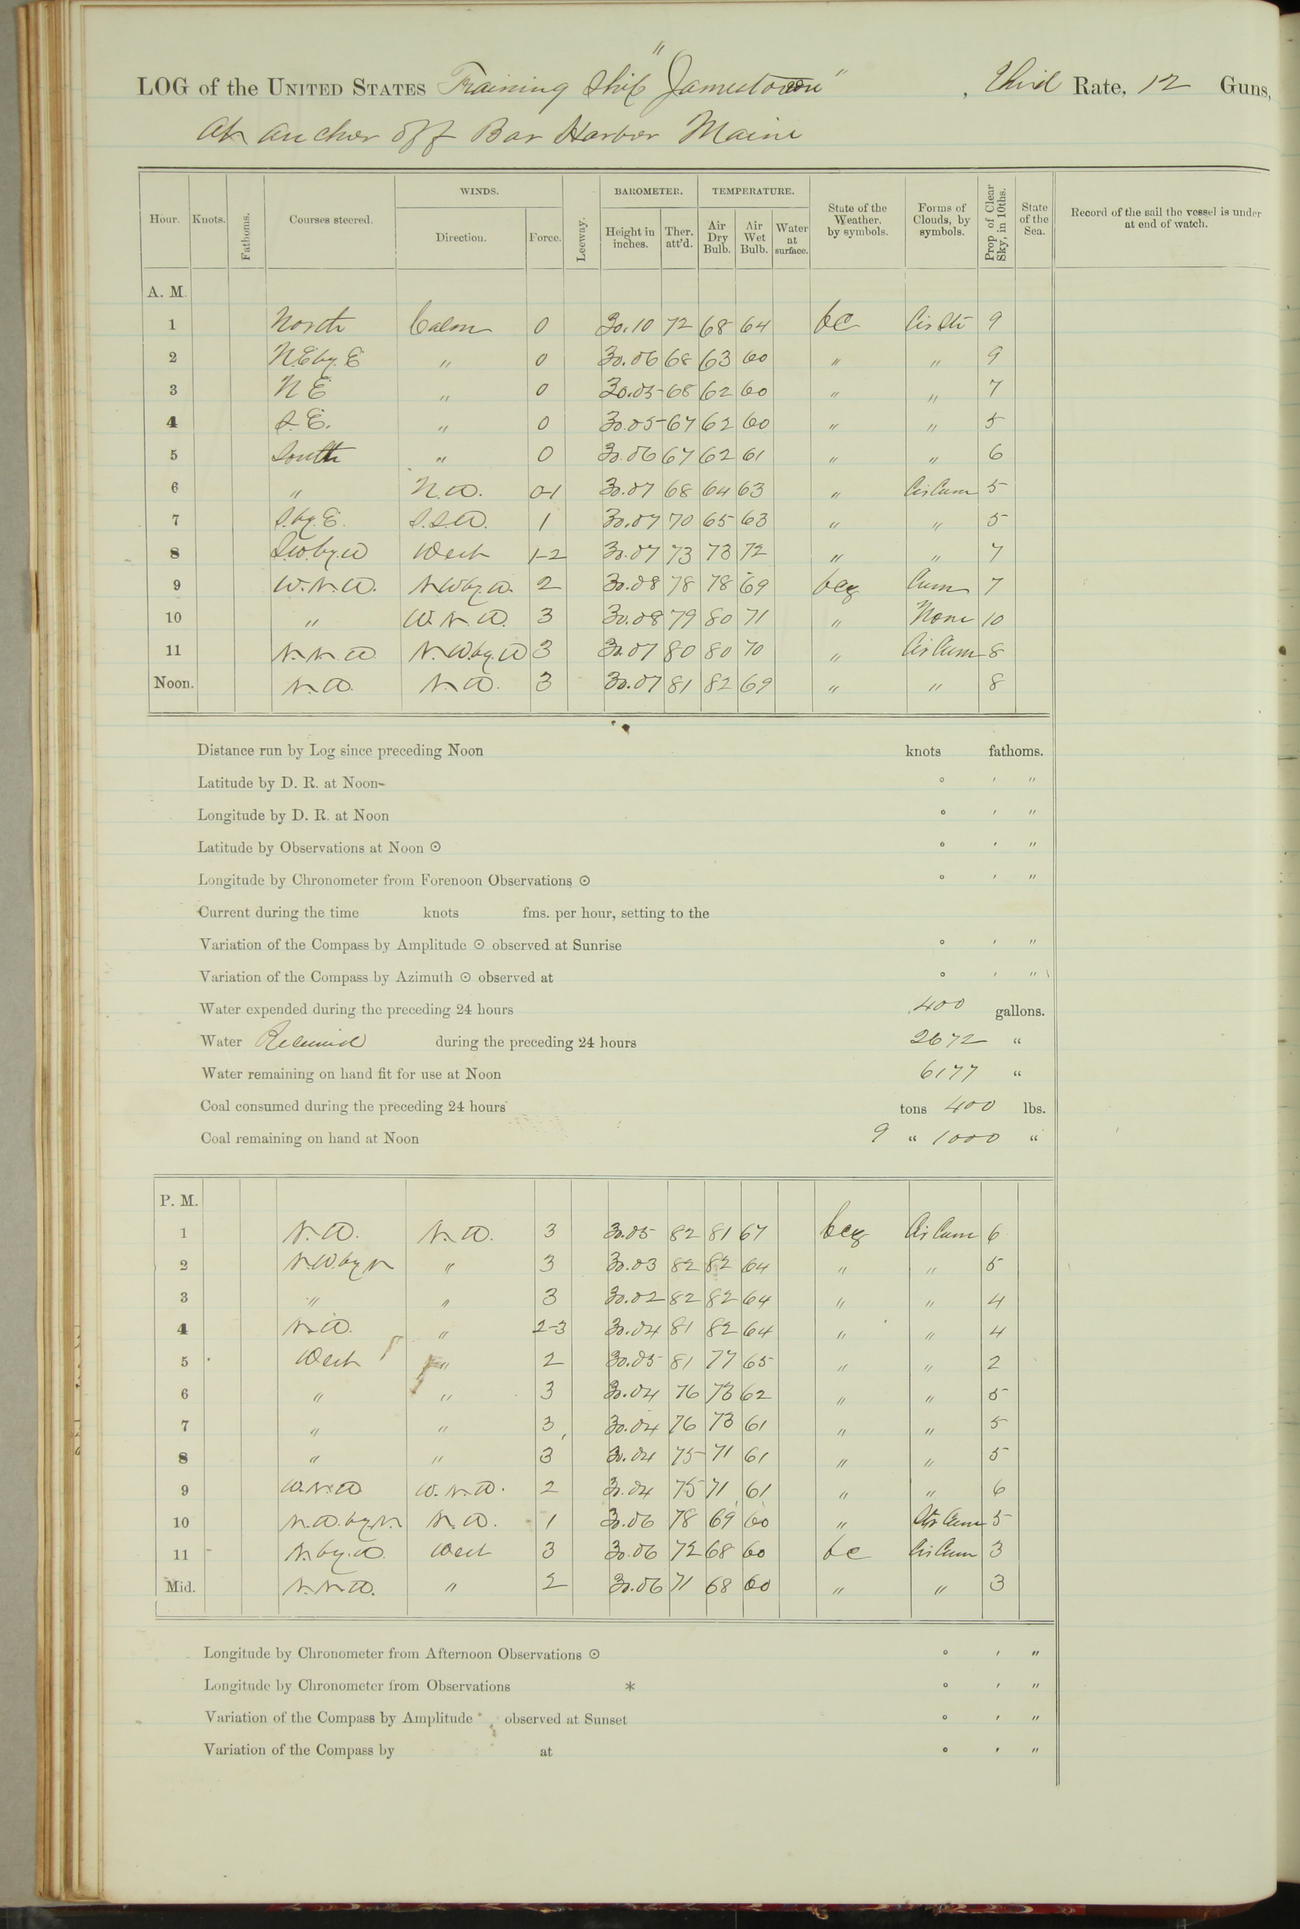 LOG of the UNITED STATES Training Ship "Jamestown", Third Rate, 12 Guns,
At anchor off Bar Harbor Maine
Hour. Knots. Fathoms. Courses steered. WINDS. Direction. Force. Leeway. BAROMETER. Height in inches. Ther. att'd. TEMPERATURE. Air Dry Bulb. Air Wet Bulb. Water at surface. State of the Weather, by symbols. Forms of Clouds, by symbols. Prop. of Clear Sky, in 10ths. State of the Sea. Record of the sail the vessel is under at end of watch.
A. M.
1 North Calm 0 30.10 72 68 64 bc Cir Str 9
2 N.E by. E " 0 30.06 68 63 60 " " 9
3 N E " 0 30.05 68 62 60 " " 7
4 S. E. " 0 30.05 67 62 60 " " 5
5 South " 0 30.06 67 62 61 " " 6
6 " N.W. 0-1 30.07 68 64 63 " Cir Cum 5
7 S. by. E. S.S.W. 1 30.07 70 65 63 " " 5
8 S.W by. W West 1-2 30.07 73 73 72 " " 7
9 W.N.W. N.W by. W. 2 30.08 78 78 69 bcq Cum 7
10 " W.N.W. 3 30.08 79 80 71 " None 10
11 N.N.W N.W. by. W 3 30.07 80 80 70 " Cir Cum 8
Noon. N.W. N.W. 3 30.07 81 82 69 " " 8
Distance run by Log since preceding Noon knots fathoms.
Latitude by D. R. at Noon ° ' "
Longitude by D. R. at Noon ° ' "
Latitude by Observations at Noon ⊙ ° ' "
Longitude by Chronometer from Forenoon Observations ⊙ ° ' "
Current during the time knots fms. per hour, setting to the
Variation of the Compass by Amplitude ⊙ observed at Sunrise ° ' "
Variation of the Compass by Azimuth ⊙ observed at ° ' "
Water expended during the preceding 24 hours 400 gallons.
Water Received during the preceding 24 hours 2672 "
Water remaining on hand fit for use at Noon 6177 "
Coal consumed during the preceding 24 hours tons 400 lbs.
Coal remaining on hand at Noon 9 " 1000 "
P. M.
1 N.W. N.W. 3 30.05 82 81 67 bcq Cir Cum 6
2 N.W by N " 3 30.03 82 82 64 " " 5
3 " " 3 30.02 82 82 64 " " 4
4 N.W. " 2-3 30.04 81 82 64 " " 4
5 West " 2 30.05 81 77 65 " " 2
6 " " 3 30.04 76 73 62 " " 5
7 " " 3 30.04 76 73 61 " " 5
8 " " 3 30.04 75 71 61 " " 5
9 W.N.W W.N.W. 2 30.04 75 71 61 " " 6
10 N.W. by. N. N.W. 1 30.06 78 69 60 " Cir Cum 5
11 N. by. W. West 3 30.06 72 68 60 bc Cir Cum 3
Mid. N.N.W. " 2 30.06 71 68 60 " " 3
Longitude by Chronometer from Afternoon Observations ⊙ ° ' "
Longitude by Chronometer from Observations * ° ' "
Variation of the Compass by Amplitude observed at Sunset ° ' "
Variation of the Compass by at ° ' "